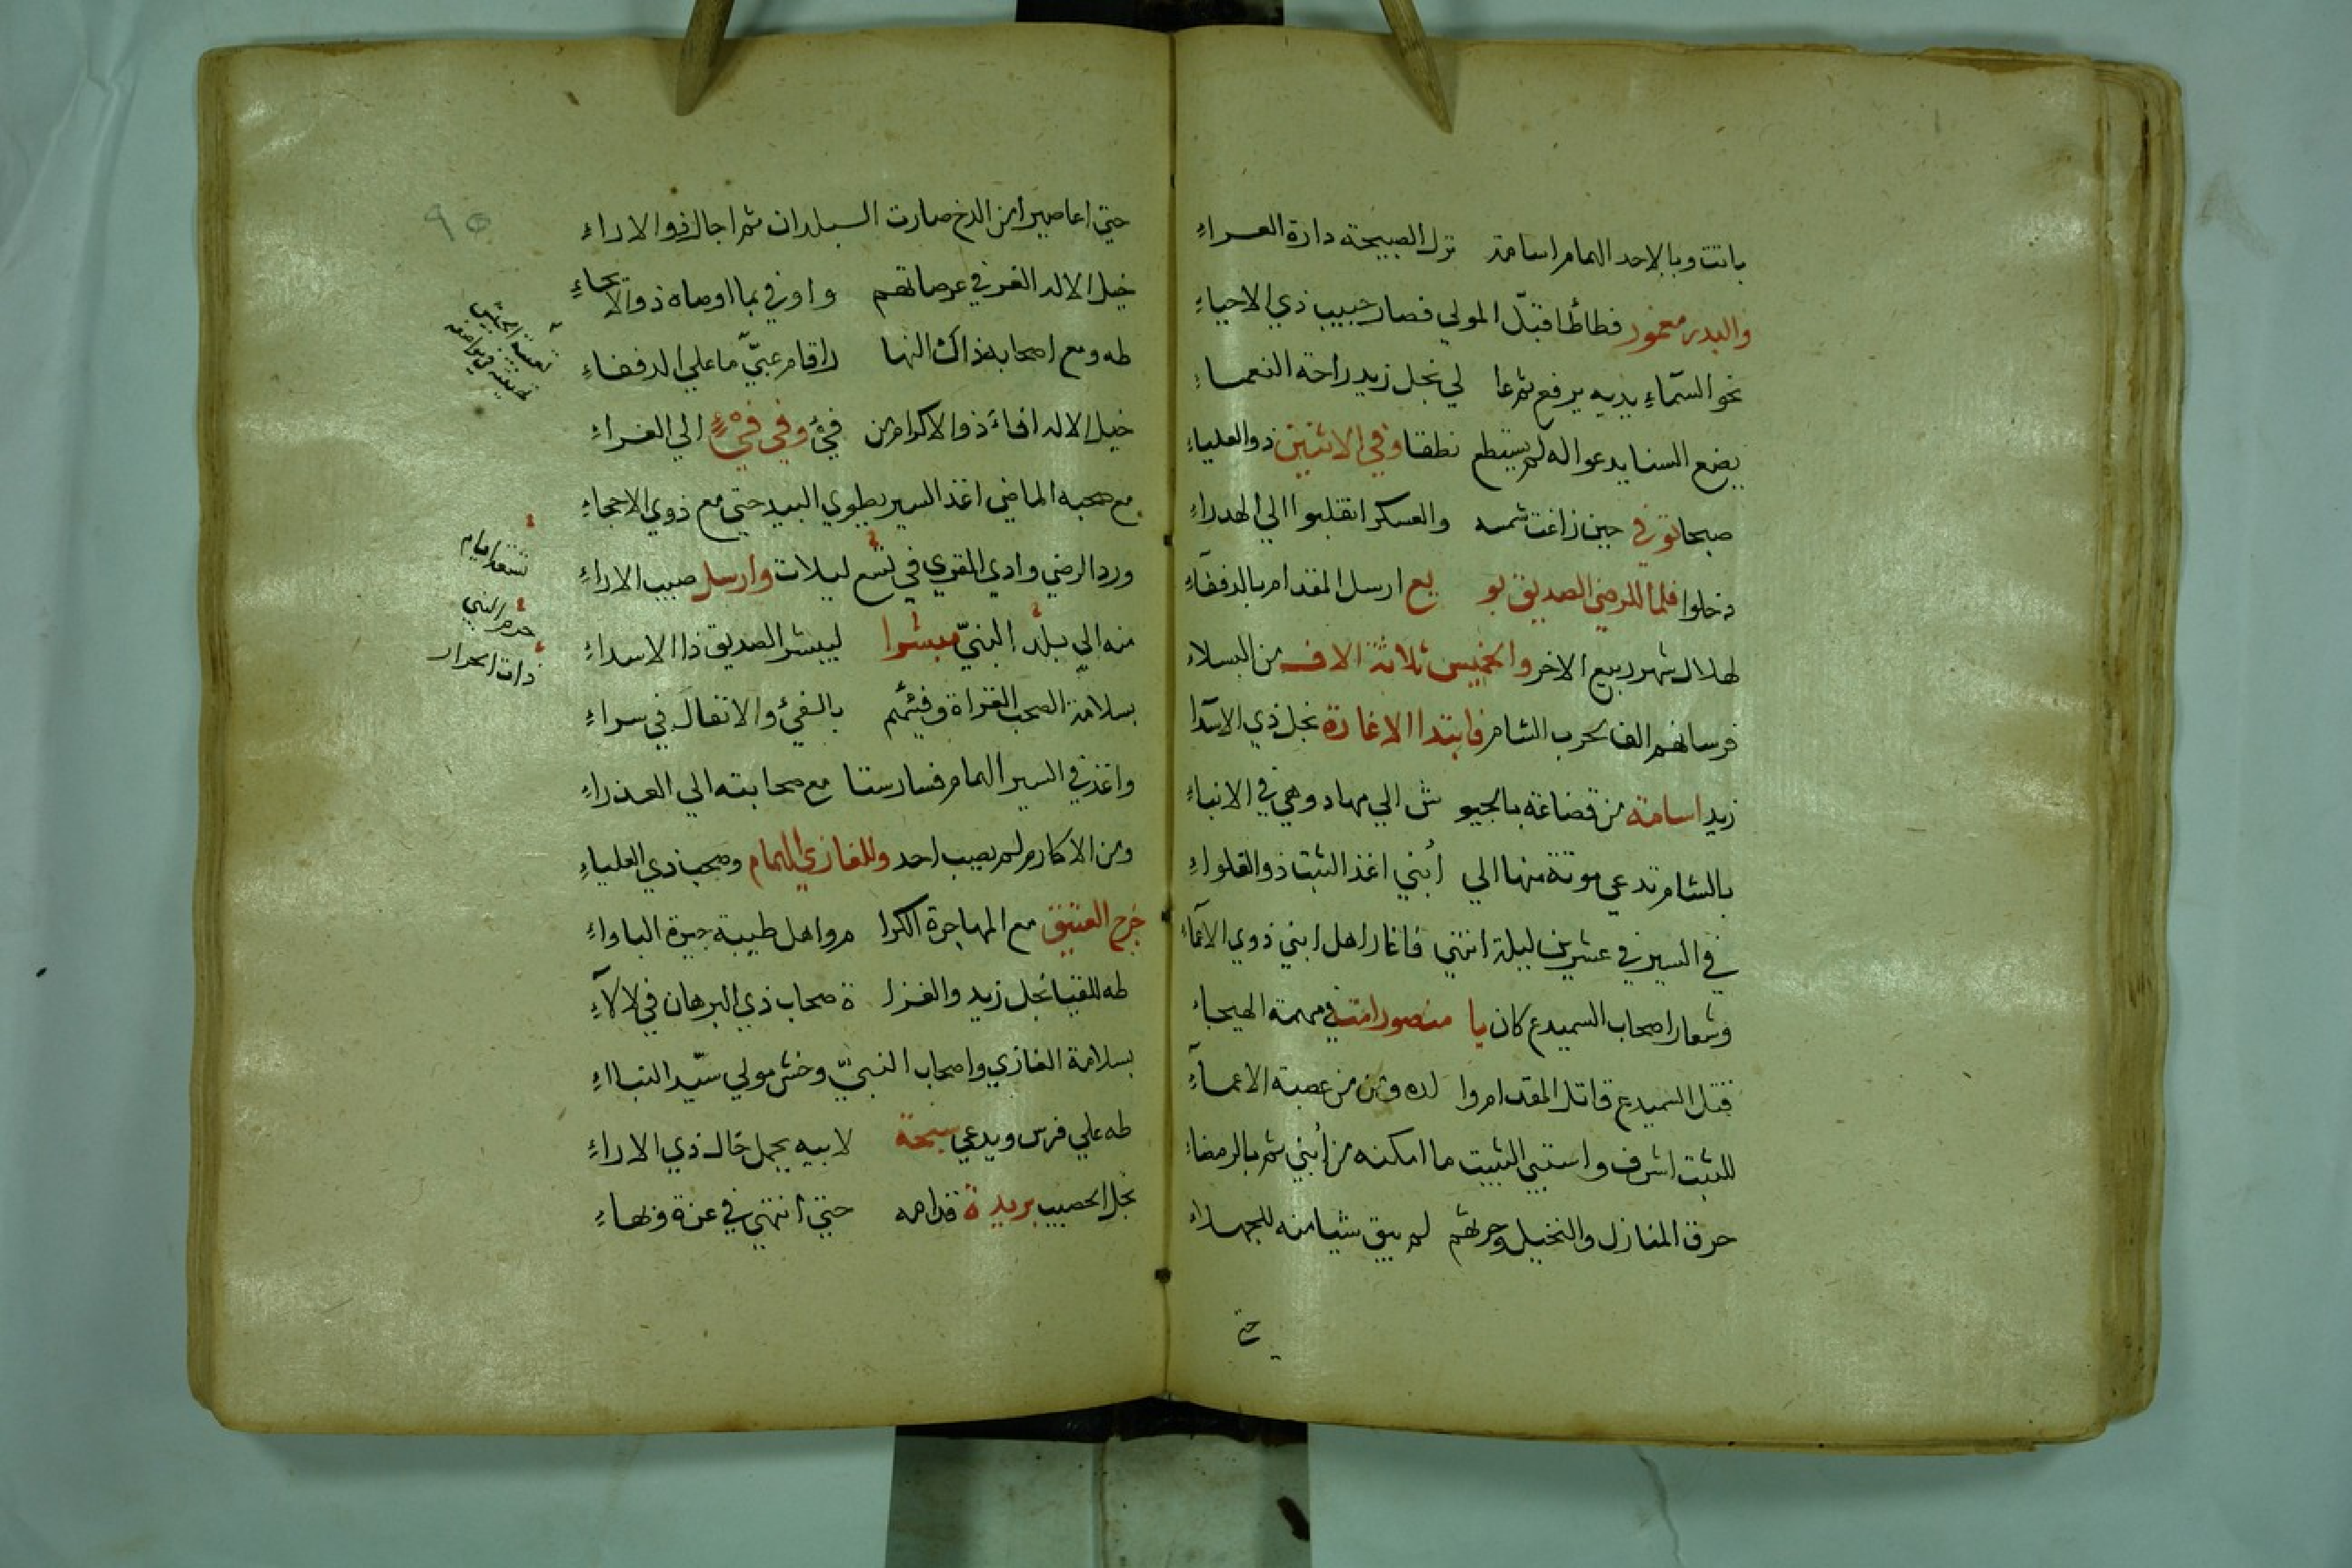 باتت وبالاحد الهمام اسامة نزل الصبيحة دارة العراء
والبدر مغمور فطاطأ قبّل المولي فصار حبيب ذي الاحياء
نحو السّماء يديه يرفع ثم عا لي نجل زيد راحة النعماء
يضع السنا يدعو اله لم يستطع نطقا وفي الاثنين ذو العلياء
صبحا توفي حين زاغت شمسه والعسكر انقلبوا الي الهدراء
دخلوا فلما للرضي الصديق بو يع ارسل المقدام بالدفقاء
لهلال شهر ربيع الاخر والخميس ثلاثة الاف من البسلاء
فرسانهم الف لحرب الشام فابتدا الاغارة نجل ذي الاسدا
زيد اسامة من قضاعة بالجيو ش الي مهاد وهي في الانباء
بالشام تدعي موتة منها الي أبني اغذ الثبت ذو الغلواء
في السير في عشرين ليلة انتهي فاغار اهل ابني ذوي الاغماء
وشعار اصحاب السميدع كان يا منصور امت في مهمة الهيجاء
قتل السميدع قاتل المقدام وا لده ومن من عصبة الاعمآء
للثبت اشرف واستبي الثبيت ما امكنه من أبني ثم بالرمضاء
حرق المنازل والنخيل وحرثهم لم يبق شيا منه للجهلاء
حتي
٩٥
حتي اعاصير من الدخ صارت السبلدان ثم اجال ذو الاراء
خيل الاله الغر في عرصاتهم واوفي بما اوصاه ذو الانحاء
طه ومع اصحابه ذاك النها ر اقام عبيّ ما علي الدفعاء
خيل الاله افاء ذو الاكرام من فيء وفي فيء الي الغراء
مع صحبه الماضي اغذ السير يطوي البيد حتي مع ذوي الاحجاء
ورد الرضي وادي القري في تسع ليلات وارسل صيب الاراء
منه الي بلد النبيّ مبشرا ليبشر الصديق ذا الاسداء
بسلامة الصحب الغزاة وفيئهم بالفيء والانفال في سراء
واغذ في السير الهمام فسار ستا مع صحابته الي العذراء
ومن الاكارم لم يصيب احد وللغازي الهمام وصحب ذي العلياء
خرج العتيق مع المهاجرة الكرا م واهل طيبة جيرة الباواء
طه للقيا نجل زيد والغزا ة صحاب ذي البرهان في لالآء
بسلامة الغازي واصحاب النبيّ وخش مولي سيّد النبااء
طه علي فرس ويدعي سبحة لابيه يجمل خال ذي الاراء
نجل الحصيب بريدة قدامه حتي انتهي في عزة وبهاء
تسعة ايام
حرم النبي
ذات الحرار